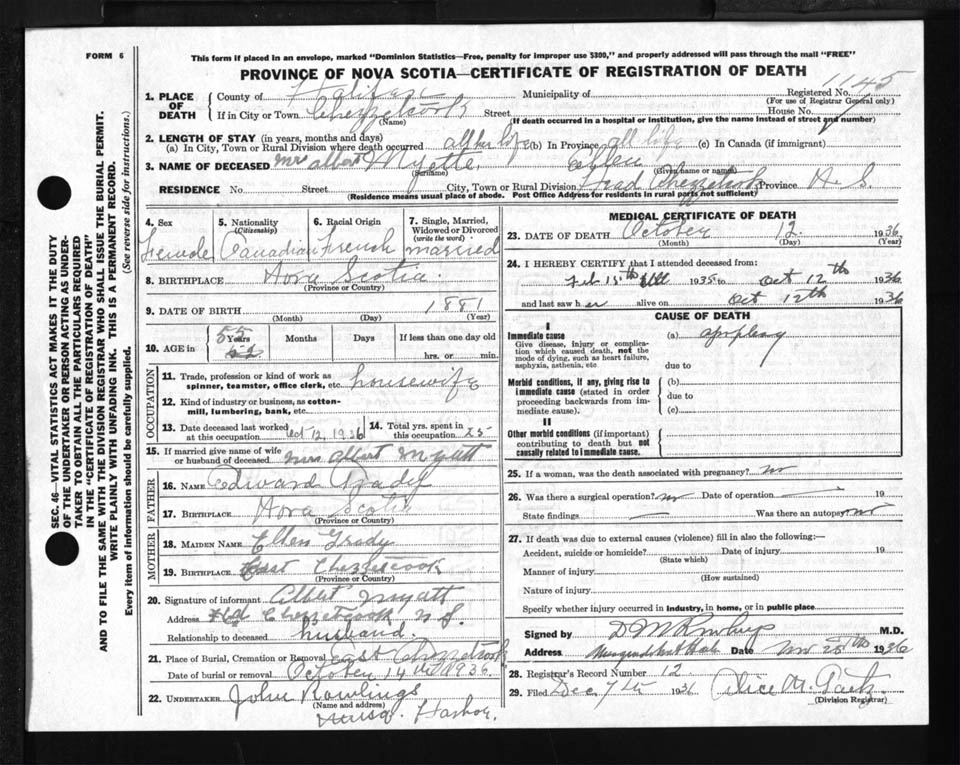 FORM 6
This form if placed in an envelope, marked "Dominion Statistics—Free, penalty for improper use $300," and properly addressed will pass through the mail "FREE"
PROVINCE OF NOVA SCOTIA—CERTIFICATE OF REGISTRATION OF DEATH
1145
1. PLACE OF DEATH
County of Halifax Municipality of Registered No.
(For use of Registrar General only)
If in City or Town Chezzetcook Street House No.
(Name) (If death occurred in a hospital or institution, give the name instead of street and number)
2. LENGTH OF STAY (in years, months and days)
(a) In City, Town or Rural Division where death occurred all her life (b) In Province all life (c) In Canada (if immigrant)
3. NAME OF DECEASED Mrs Albert Myette Ellen
(Surname) (Given name or names)
RESIDENCE No. Street City, Town or Rural Division Head Chezzetcook Province N. S.
(Residence means usual place of abode. Post Office Address for residents in rural parts not sufficient)
4. Sex 5. Nationality (Citizenship) 6. Racial Origin 7. Single, Married, Widowed or Divorced (write the word)
Female Canadian French married
8. BIRTHPLACE Nova Scotia
(Province or Country)
9. DATE OF BIRTH 1881
(Month) (Day) (Year)
10. AGE in 55 Years Months Days If less than one day old
hrs. or min.
OCCUPATION
11. Trade, profession or kind of work as spinner, teamster, office clerk, etc. housewife
12. Kind of industry or business, as cotton-mill, lumbering, bank, etc.
13. Date deceased last worked at this occupation Oct 12, 1936 14. Total yrs. spent in this occupation 25
15. If married give name of wife or husband of deceased Mrs Albert Myatt
FATHER
16. NAME Edward Grady
17. BIRTHPLACE Nova Scotia
(Province or Country)
MOTHER
18. MAIDEN NAME Ellen Grady
19. BIRTHPLACE East Chezzetcook
(Province or Country)
20. Signature of informant Albert Myatt
Address Hd Chezzetcook N S.
Relationship to deceased husband.
21. Place of Burial, Cremation or Removal East Chezzetcook
Date of burial or removal October 14th 1936.
22. UNDERTAKER John Rawlings
(Name and address)
Musq. Harbor.
MEDICAL CERTIFICATE OF DEATH
23. DATE OF DEATH October 12 1936
(Month) (Day) (Year)
24. I HEREBY CERTIFY that I attended deceased from:
Feb 15th 1935 to Oct 12th 1936
and last saw her alive on Oct 12th 1936
CAUSE OF DEATH
I
Immediate cause
Give disease, injury or complication which caused death, not the mode of dying, such as heart failure, asphyxia, asthenia, etc
(a) apoplexy
due to
Morbid conditions, if any, giving rise to immediate cause (stated in order proceeding backwards from immediate cause).
(b)
due to
(c)
II
Other morbid conditions (if important) contributing to death but not causally related to immediate cause.
25. If a woman, was the death associated with pregnancy? no
26. Was there a surgical operation? no Date of operation 19
State findings Was there an autopsy? no
27. If death was due to external causes (violence) fill in also the following:—
Accident, suicide or homicide? Date of injury 19
(State which)
Manner of injury
(How sustained)
Nature of injury
Specify whether injury occurred in industry, in home, or in public place
Signed by D M Rawlings M.D.
Address Musquodoboit Harb Date Nov 25th 1936
28. Registrar's Record Number 12
29. Filed Dec 7th 1936
(Division Registrar)
SEC. 46—VITAL STATISTICS ACT MAKES IT THE DUTY
OF THE UNDERTAKER OR PERSON ACTING AS UNDER-
TAKER TO OBTAIN ALL THE PARTICULARS REQUIRED
IN THE "CERTIFICATE OF REGISTRATION OF DEATH"
AND TO FILE THE SAME WITH THE DIVISION REGISTRAR WHO SHALL ISSUE THE BURIAL PERMIT.
WRITE PLAINLY WITH UNFADING INK. THIS IS A PERMANENT RECORD.
Every item of information should be carefully supplied. (See reverse side for instructions.)